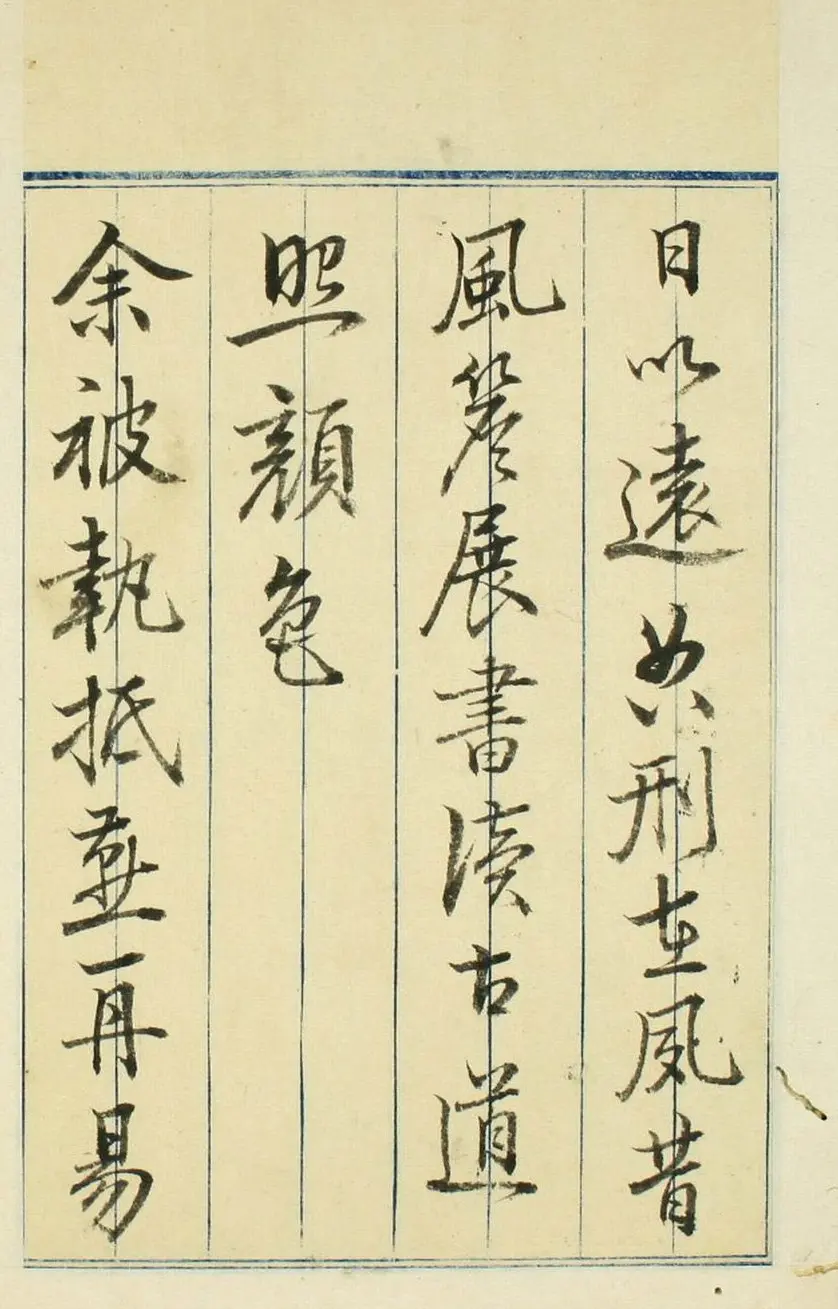 日以遠典刑在夙昔
風簷展書讀古道
照顏色
余被執抵燕再易